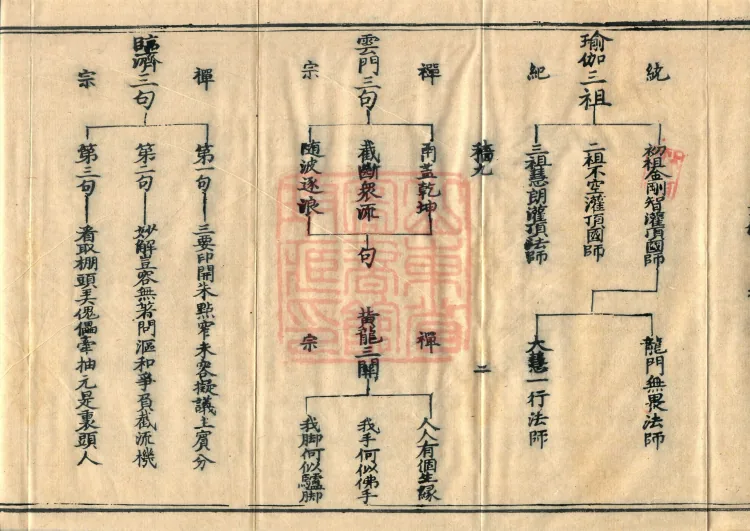 統
瑜伽三祖
紀
初祖金剛智灌頂國師
二祖不空灌頂國師
三祖慧朗灌頂法師
龍門無畏法師
大慧一行法師
稿九
二
禪
雲門三句
宗
凾蓋乾坤
截斷衆流
随波逐浪
句
禪
黃龍三関
宗
人人有個生緣
我手何似佛手
我脚何似驢脚
禪
臨濟三句
宗
第一句
三要印開朱點窄未容擬議主賓分
第二句
妙解豈容無著問漚和爭負截流機
第三句
看取棚頭弄傀儡牽抽元是裏頭人